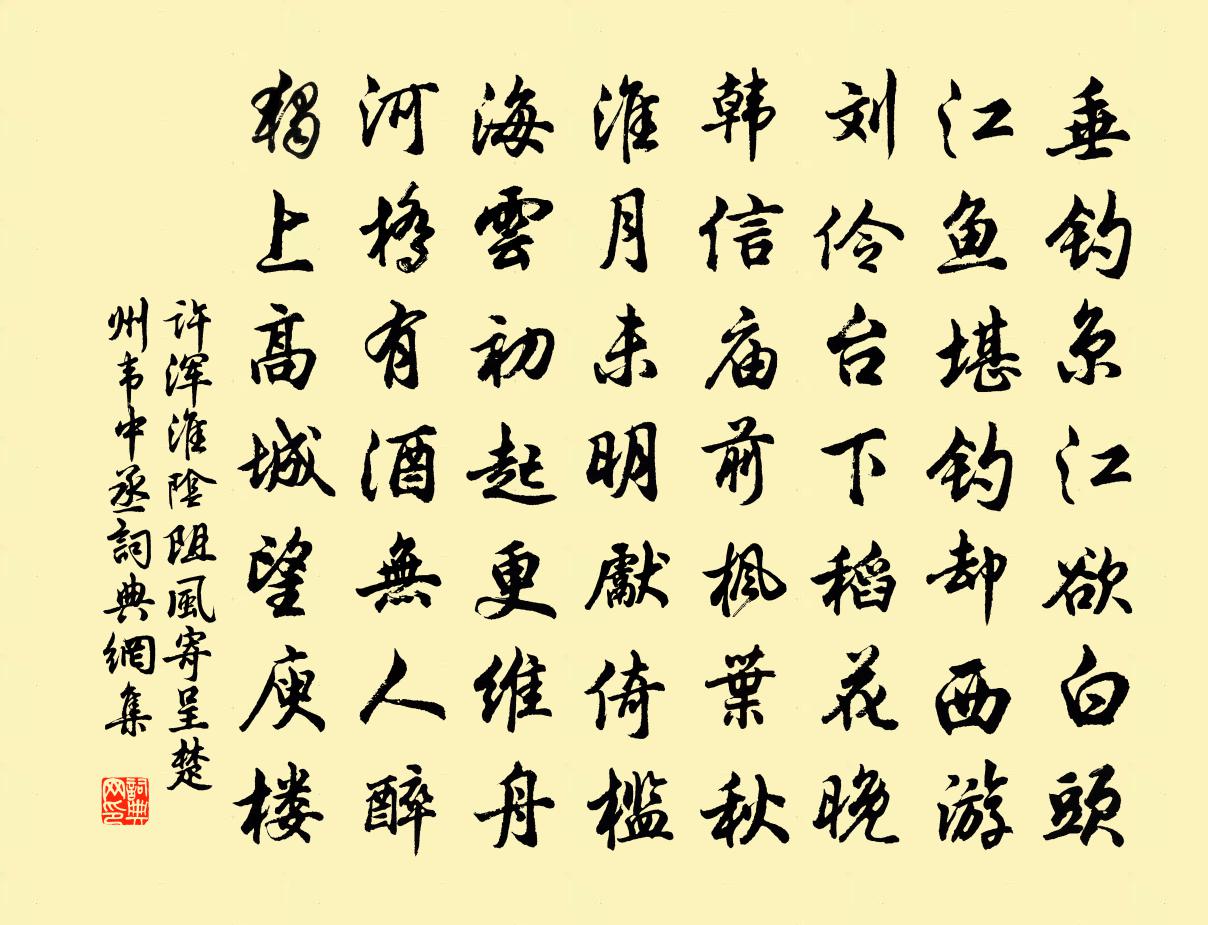 垂钓京江欲白頭
江鱼堪钓却西游
刘伶台下稻花晚
韩信庙前枫葉秋
淮月未明獻倚槛
海雲初起更维舟
河橋有酒無人醉
獨上高城望庾楼
许浑淮陰阻風寄呈楚
州韦中丞詞典網集
詞典
网印